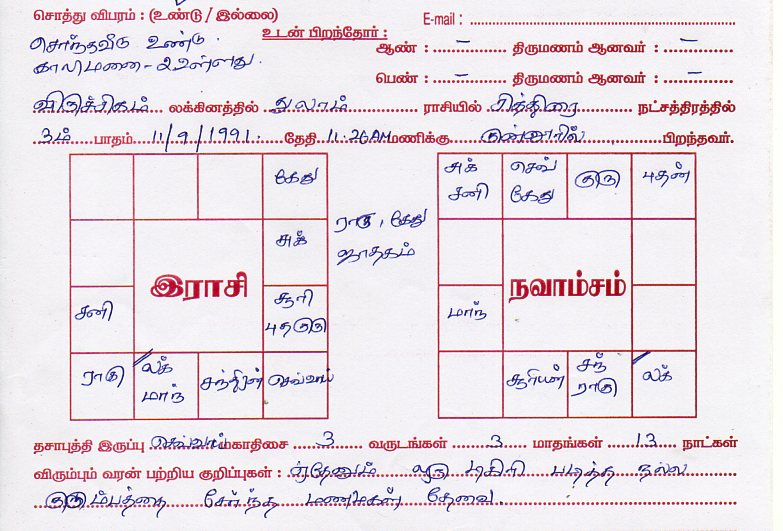 சொத்து விபரம் : (உண்டு / இல்லை) E-mail :
சொந்தவீடு உண்டு. உடன் பிறந்தோர் : ஆண் : – திருமணம் ஆனவர் : –
காலிமனை - உள்ளது.
பெண் : – திருமணம் ஆனவர் : –
விருச்சிகம் லக்கினத்தில் துலாம் ராசியில் சித்திரை நட்சத்திரத்தில்
3ம் பாதம் 11/9/1991. தேதி 11.26AM மணிக்கு குன்னூரில் பிறந்தவர்.
கேது
சுக்
சனி
இராசி
சூரி
புத குரு
ராகு
லக்
மாந்
சந்திரன்
செவ்வாய்
ராகு, கேது
ஜாதகம்
சுக்
சனி
செவ்
கேது
குரு
புதன்
நவாம்சம்
மாந்
சூரியன்
சந்
ராகு
லக்
தசாபுத்தி இருப்பு செவ்வாய் மகாதிசை 3 வருடங்கள் 3 மாதங்கள் 13 நாட்கள்
விரும்பும் வரன் பற்றிய குறிப்புகள் : ஏதேனும் ஒரு டிகிரி படித்த நல்ல
குடும்பத்தை சேர்ந்த மணமகள் தேவை.